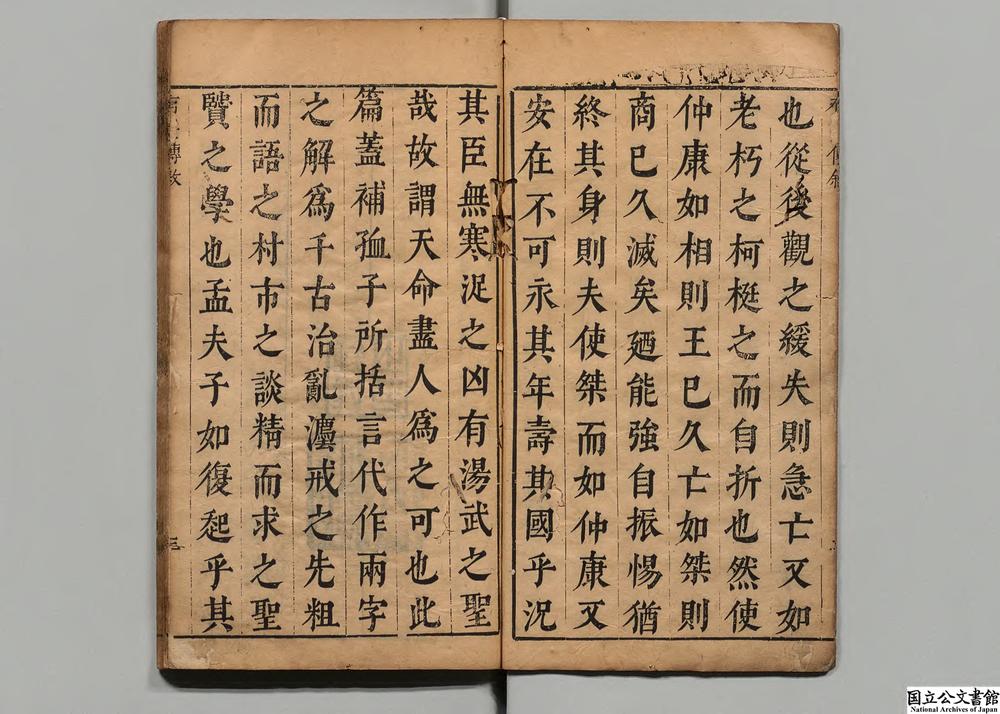 也從後觀之緩失則急亡又如
老朽之柯梃之而自折也然使
仲康如相則王巳久亡如桀則
商巳久滅矣廼能強自振惕猶
終其身則夫使桀而如仲康又
安在不可永其年壽其國乎況
其臣無寒浞之凶有湯武之聖
哉故謂天命盡人爲之可也此
篇蓋補孤子所括言代作兩字
之解爲千古治亂灋戒之先粗
而語之村市之談精而求之聖
賢之學也孟夫子如復起乎其
三
国立公文書館
National Archives of Japan